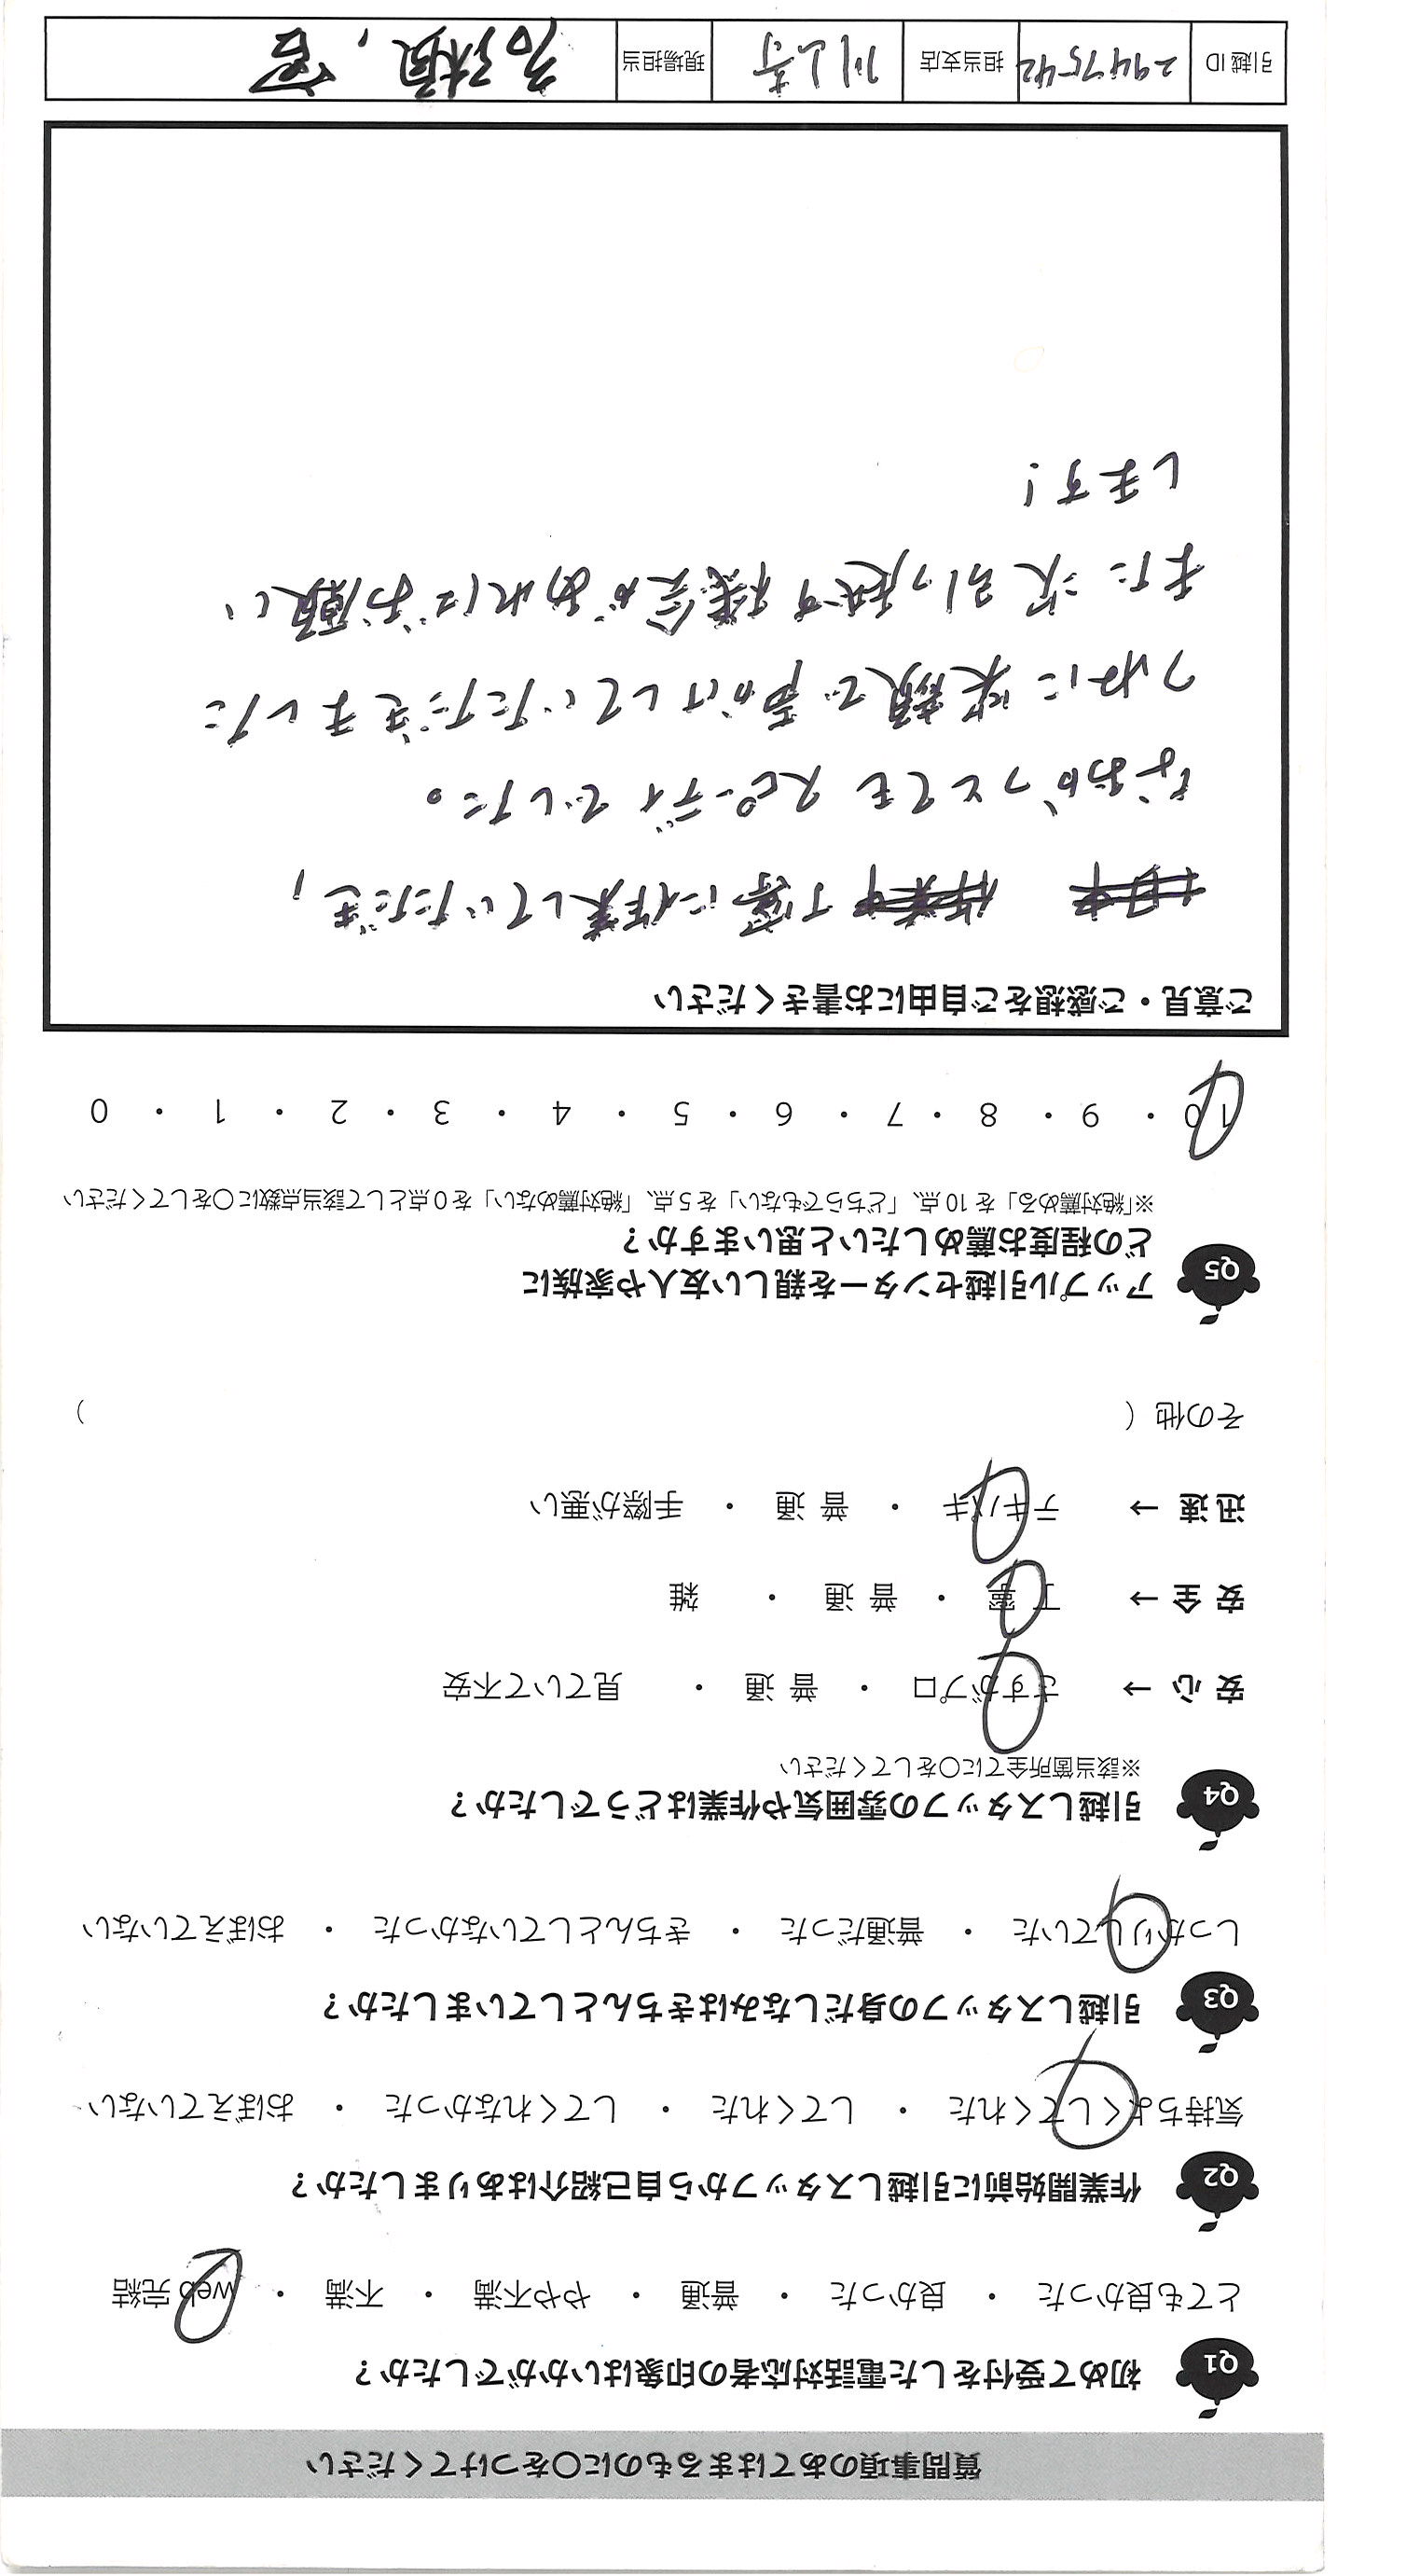 質問事項のあてはまるものに〇をつけてください
Q1 初めて受付をした電話対応者の印象はいかがでしたか?
とても良かった ・ 良かった ・ 普通 ・ やや不満 ・ 不満 ・ web 完結
Q2 作業開始前に引越しスタッフから自己紹介はありましたか?
気持ちよくしてくれた ・ してくれた ・ してくれなかった ・ おぼえていない
Q3 引越しスタッフの身だしなみはきちんとしていましたか?
しっかりしていた ・ 普通だった ・ きちんとしていなかった ・ おぼえていない
Q4 引越しスタッフの雰囲気や作業はどうでしたか?
※該当箇所全てに〇をしてください
安 心 → さすがプロ ・ 普 通 ・ 見ていて不安
安 全 → 丁 寧 ・ 普 通 ・ 雑
迅 速 → テキパキ ・ 普 通 ・ 手際が悪い
その他 ( )
Q5 アップル引越センターを親しい友人や家族に
どの程度お薦めしたいと思いますか?
※「絶対薦める」を 10 点、「どちらでもない」を 5 点、「絶対薦めない」を 0 点として該当点数に〇をしてください
10 ・ 9 ・ 8 ・ 7 ・ 6 ・ 5 ・ 4 ・ 3 ・ 2 ・ 1 ・ 0
ご意見・ご感想をご自由にお書きください
作業中 丁寧に作業していただき、
なおかつとてもスピーディでした。
つねに笑顔で声がけしていただきました
また次引っ越す機会があればお願い
します!
引越 ID 2947542 担当支店 現場担当